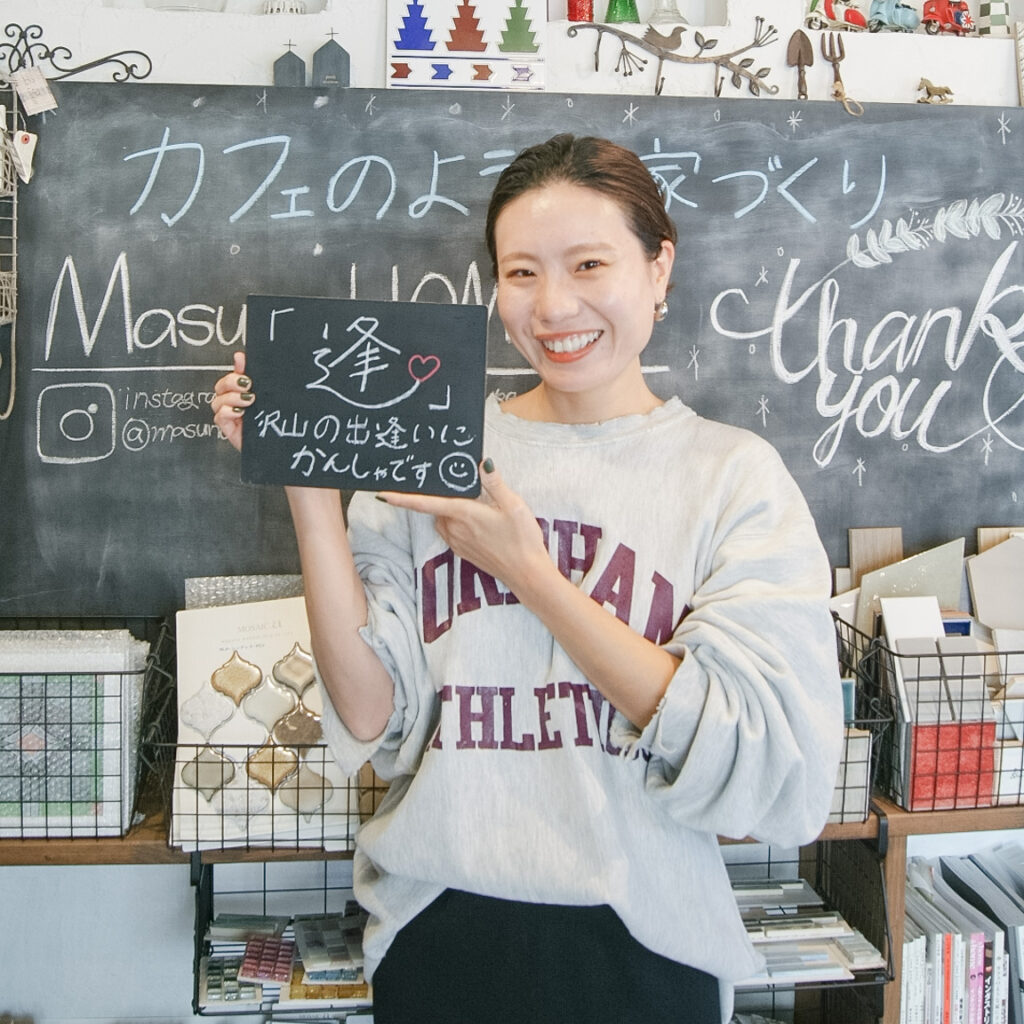 カフェのよう 家づくり
Masu HOM
instagra
@masuno
Thank
you
「逢」
沢山の出逢いに
かんしゃです
MOSAIC-CL
ATHLETIC